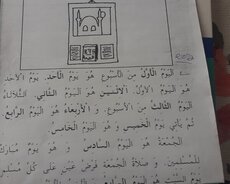 اَلْيَوْمُ الْأَوَّلُ مِنَ الْأُسْبُوعِ هُوَ يَوْمُ الْأَحَدِ. يَوْمُ الْأَحَدِ
هُوَ الْيَوْمُ الْأَوَّلُ. اَلْاِثْنَيْنِ هُوَ الْيَوْمُ الثَّانِي. اَلثُّلَاثَاءُ
الْيَوْمُ الثَّالِثُ مِنَ الْأُسْبُوعِ. وَ الْأَرْبِعَاءُ هُوَ الْيَوْمُ الرَّابِعُ.
ثُمَّ يَأْتِي يَوْمُ الْخَمِيسِ وَ هُوَ الْيَوْمُ الْخَامِسُ.
اَلْجُمْعَةُ هُوَ الْيَوْمُ السَّادِسُ وَ هُوَ يَوْمٌ مُبَارَكٌ
لِلْمُسْلِمِينَ. وَ صَلَاةُ الْجُمْعَةِ فَرْضُ عَيْنٍ عَلَى كُلِّ مُسْلِمٍ
يَوْمُ السَّبْتِ هُوَ الْيَوْمُ